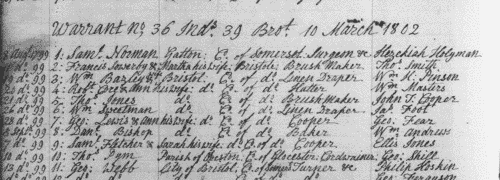 Warrant No. 36 Inds. 39 Brot. 10 March 1802
99 1: Saml. Norman Yatton Co. of Somerset Surgeon & Hezekiah Holyman
do. 99 2: Francis & Martha his wife Bristol Brush Maker Thos. Smith
do. 99 3: Wm. Bazley Bristol Co. of do. Linen Draper Wm. K. Pinson
do. 99 4: Robt. & Ann his wife do. Co. of do. Hatter Wm. Masters
do. 99 5: Thos. Jones do. Co. of do. Brush Maker John T. Cooper
do. 99 6: Wm. do. Co. of do. Linen Draper Jas. Foot
do. 99 7: Geo. Lewis & Ann his wife do. Co. of do. Cooper Geo. Fear
Sept. 99 8: Danl. Bishop do. Co. of do. Baker Wm. Andrews
7 do. 99 9: Saml. Fletcher & Sarah his wife do. Co. of do. Cooper Ellis Jones
10 do. 99 10: Thos. Pym Parish of Co. of Glocester Cordwainer Geo. Shill
13 do. 99 11: Geo. Webb City of Bristol Co. of Turner &c. Philip Hoskin
do. Geo. Ferguson